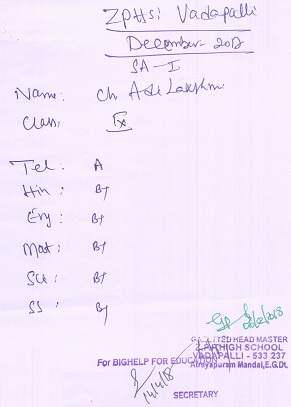 ZPHS: Vadapalli
December 2012
SA-I
Name: Ch Adi Lakshmi
Class: IX
Tel: A
Hin: B+
Eng: B+
Mat: B+
Sci: B+
SS: B+
HEAD MASTER
Z.P. HIGH SCHOOL
VADAPALLI - 533 237
Atreyapuram Mandal, E.G.Dt.
For BIGHELP FOR EDUCATION
SECRETARY